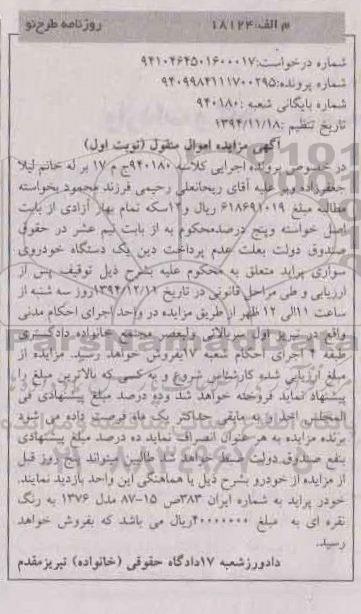 م الف:۱۸۱۲۴ روزنامه طرح‌نو
شماره درخواست:۹۴۱۰۴۶۴۵۰۱۶۰۰۰۱۷
شماره پرونده:۹۴۰۹۹۸۴۱۱۱۷۰۰۲۹۵
شماره بایگانی شعبه :۹۴۰۱۸۰
تاریخ تنظیم :۱۳۹۴/۱۱/۱۸
آگهی مزایده اموال منقول (نوبت اول)
در خصوص پرونده اجرایی کلاسه ۹۴۰۱۸۰ج م ۱۷ بر له خانم لیلا
جعفرزاده وبر علیه آقای ریحانعلی رحیمی فرزند محمود بخواسته
مطالبه مبلغ ۶۱۸۶۹۱۰۱۹ ریال و۱۲سکه تمام بهار آزادی از بابت
اصل خواسته وپنج درصدمحکوم به از بابت نیم عشر در حقوق
صندوق دولت بعلت عدم پرداخت دین یک دستگاه خودروی
سواری پراید متعلق به محکوم علیه بشرح ذیل توقیف پس از
ارزیابی و طی مراحل قانونی در تاریخ ۱۳۹۴/۱۲/۱۱روز سه شنبه از
ساعت ۱۱الی ۱۲ ظهر از طریق مزایده در واحد اجرای احکام مدنی
واقع در تبریز اول سربالائی ولیعصر مجتمع خانواده دادگستری
طبقه ۴ اجرای احکام شعبه ۱۷بفروش خواهد رسید. مزایده از
مبلغ ارزیابی شده کارشناس شروع و به کسی که بالاترین مبلغ را
پیشنهاد نماید فروخته خواهد شد وده درصد مبلغ پیشنهادی فی
المجلس اخذ و به مابقی حداکثر یک ماه فرصت داده می شود
برنده مزایده به هر عنوان انصراف نماید ده درصد مبلغ پیشنهادی
بنفع صندوق دولت ضبط خواهد شد طالبین میتواند پنج روز قبل
از مزایده از خودرو بشرح ذیل با هماهنگی این واحد بازدید نمایند.
خودر پراید به شماره ایران ۳۸۳ص ۱۵-۸۷ مدل ۱۳۷۶ به رنگ
نقره ای به مبلغ ۴۰۰۰۰۰۰۰ریال می باشد که بفروش خواهد
رسید.
دادورزشعبه ۱۷دادگاه حقوقی (خانواده) تبریزمقدم
ParsNamadData